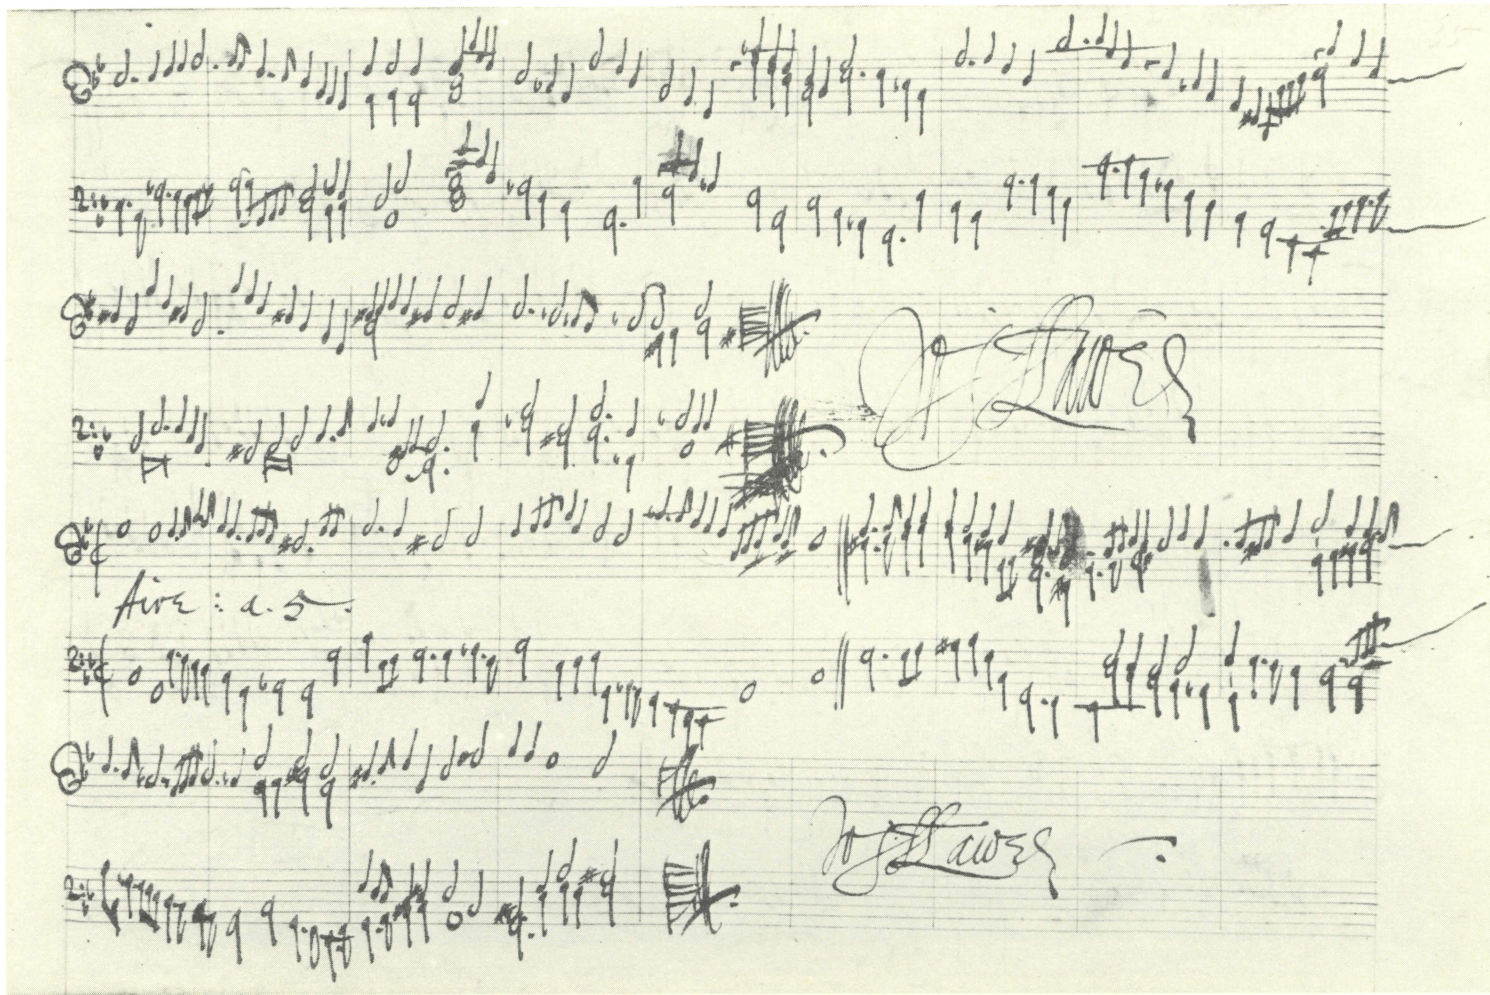 Wo: Lawes
Aire: a. 5.
Wo: Lawes